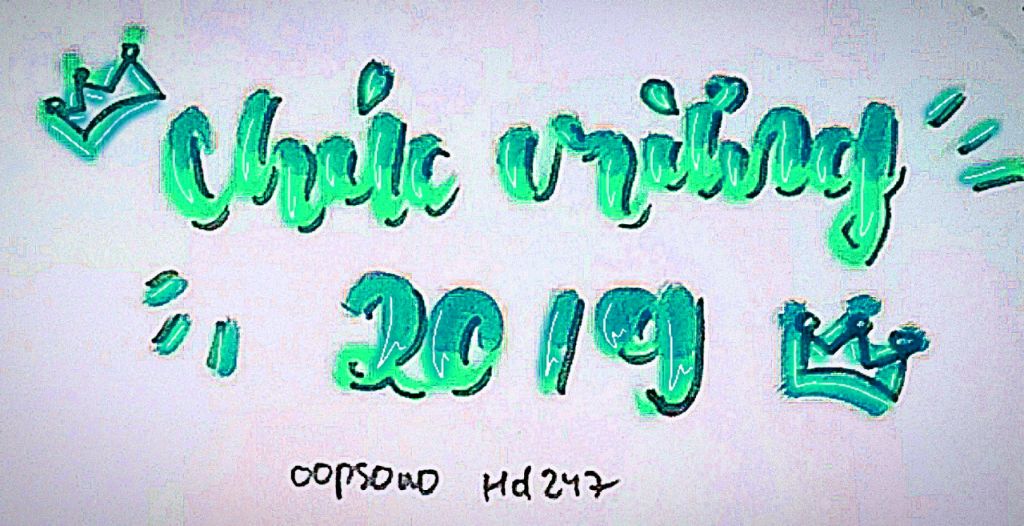 Chúc mừng
2019
oopsowo Hd247